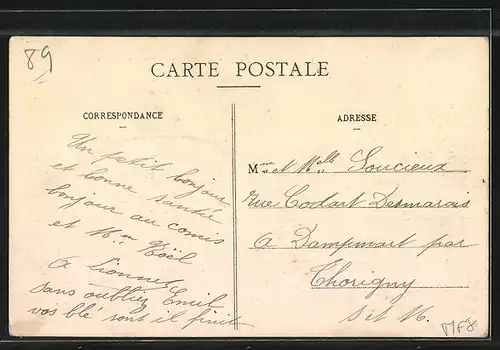 89
CARTE POSTALE
CORRESPONDANCE
Un petit bonjour
et bonne santé
bonjour au comis
et Mm Noël
A Lionnet
sans oubliez Emil
vos blé sont il finit
ADRESSE
Mme et Melle Soucieux
Rue Codart Desmarais
A Dampmart par
Thorigny
S et M.
MF8